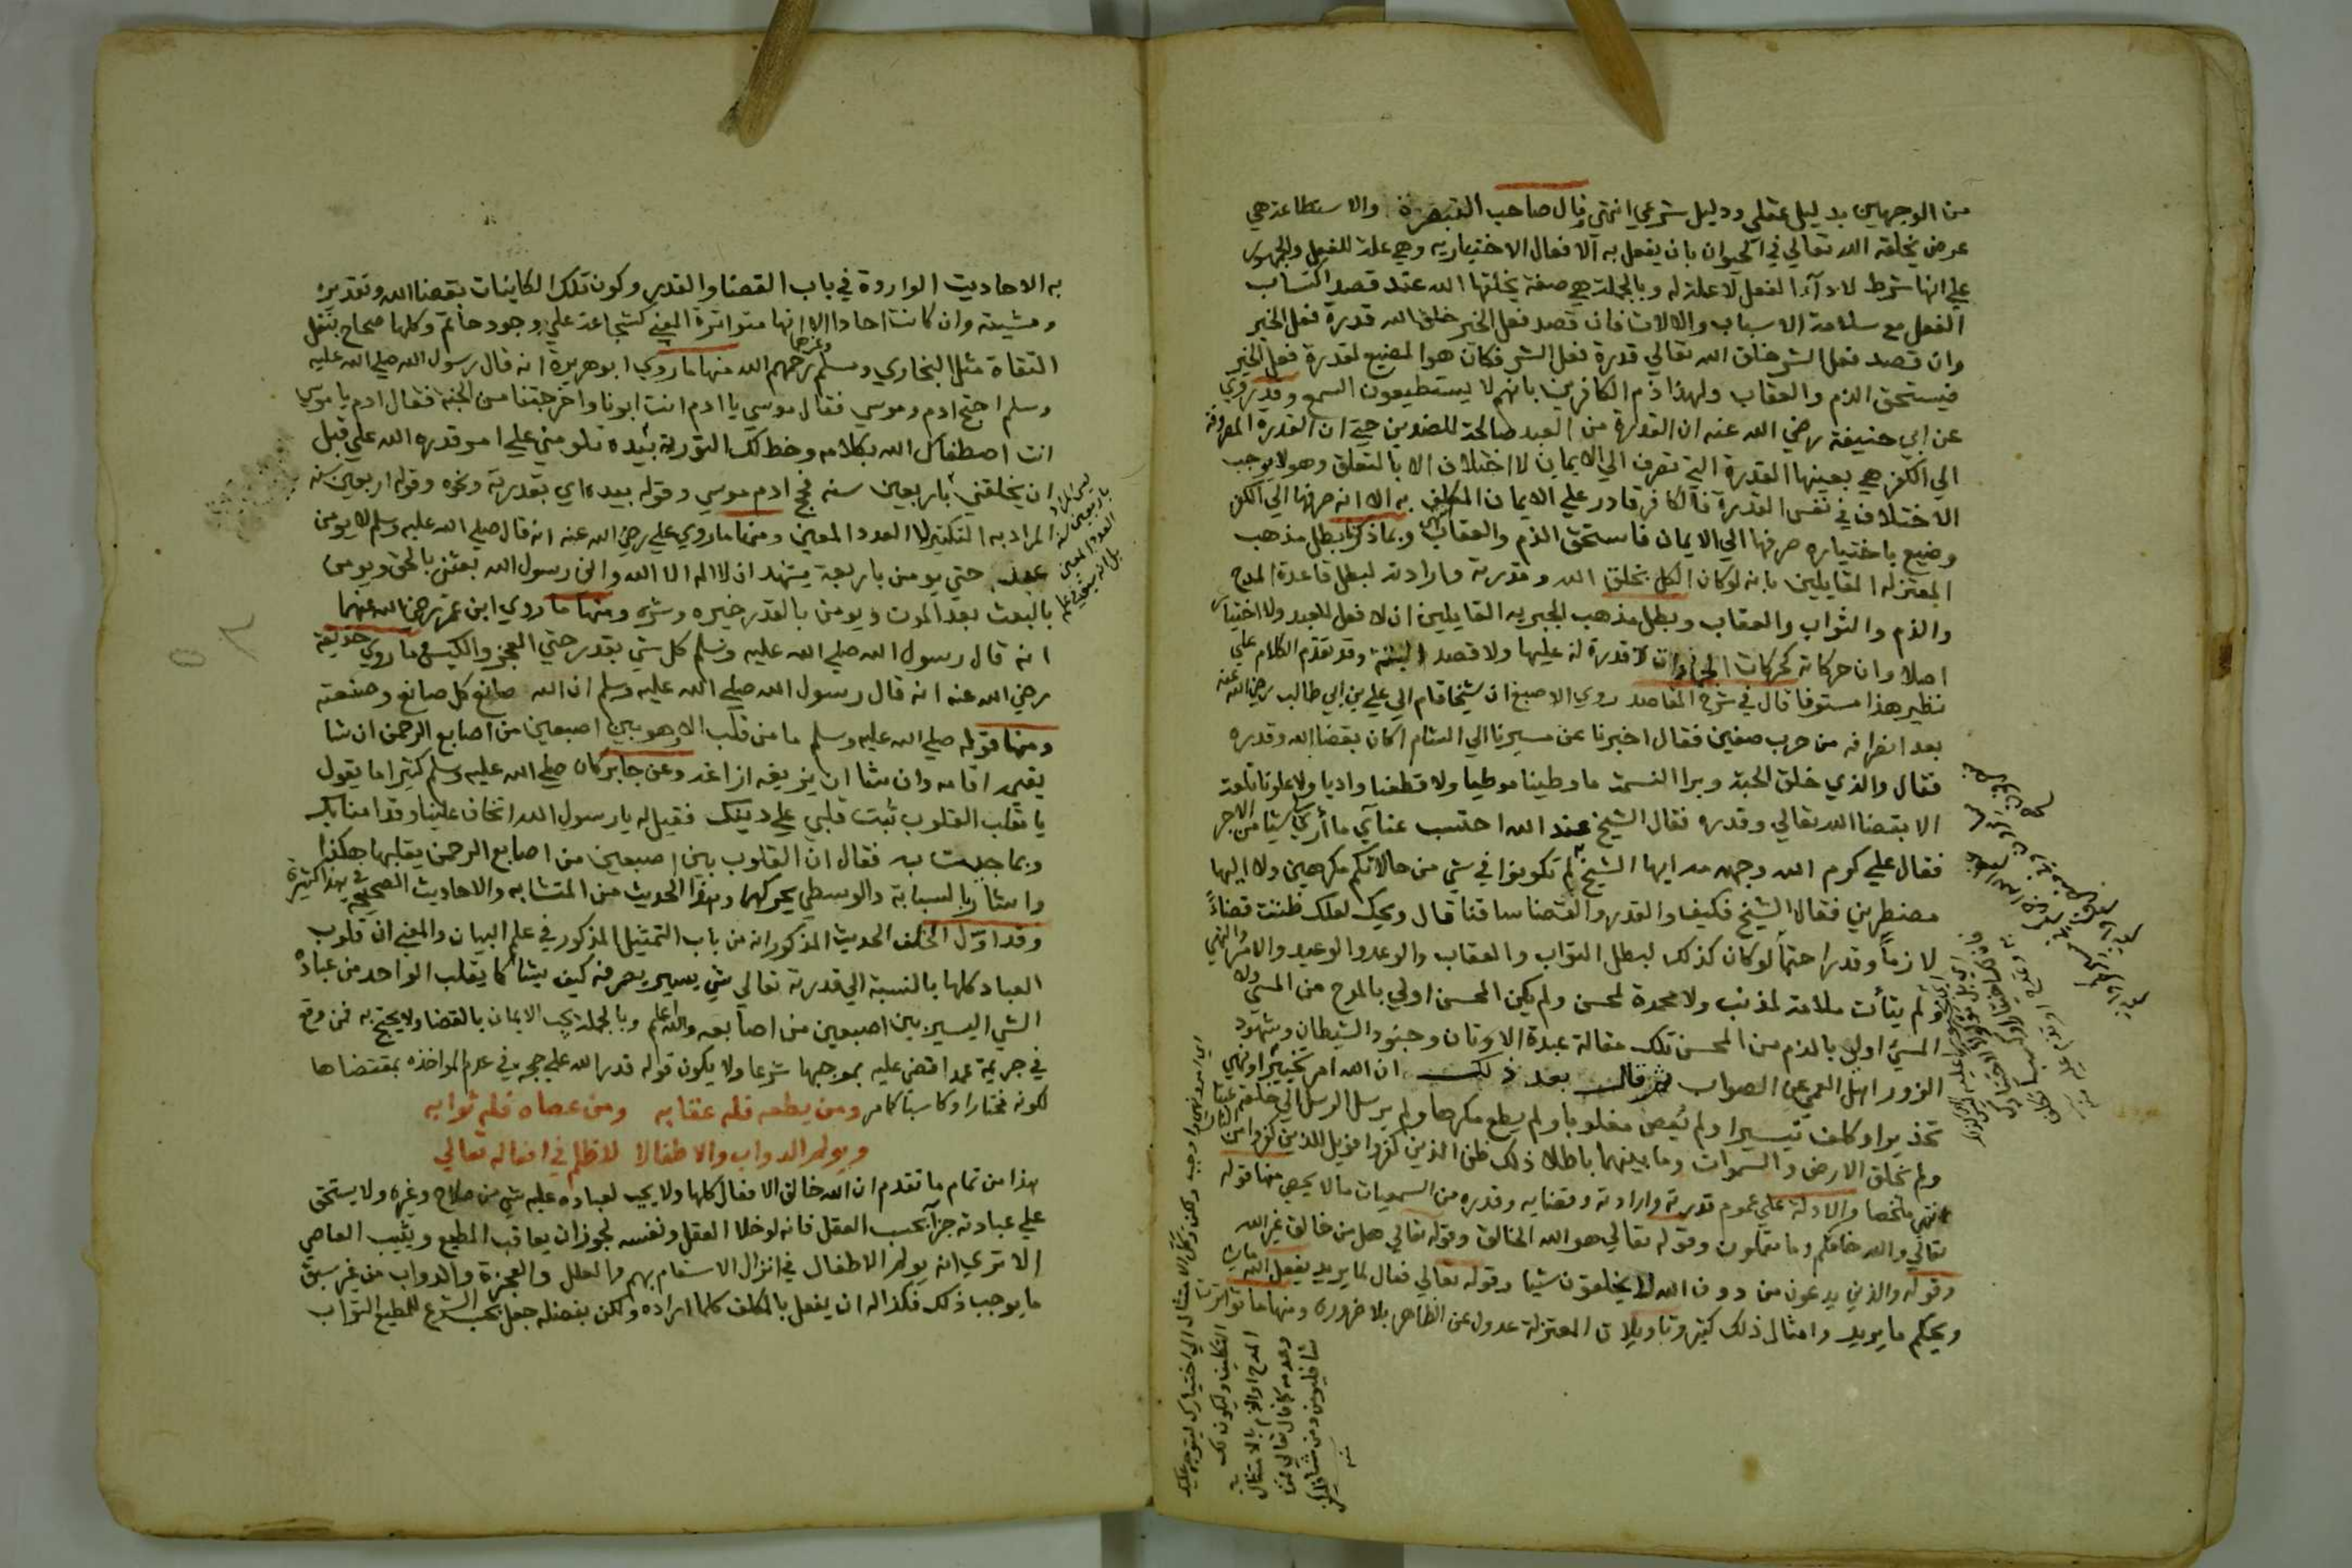 من الوجهين بدليل عقلي ودليل شرعي انتهي وقال صاحب التبصرة والاستطاعة هي
عرض يخلقه الله تعالي في الحيوان بان يفعل به الافعال الاختياريه وهي علة للفعل والجمهور
علي انها شرط لادآء الفعل لا علة له وبالجملة هي صفة يخلقها الله عند قصد اكتساب
الفعل مع سلامة الاسباب والالات فان قصد فعل الخير خلق الله قدرة فعل الخير
وان قصد فعل الشر خلق الله تعالي قدرة فعل الشر فكان هو المضيع لقدرة فعل الخير
فيستحق الذم والعقاب ولهذا ذم الكافرين بانهم لا يستطيعون السمع وقد روي
عن ابي حنيفة رضي الله عنه ان القدرة من العبد صالحة للضدين حتي ان القدرة المصروفة
الي الكفر هي بعينها القدرة التي تصرف الي الايمان لا اختلاف الا بالتعلق وهو لا يوجب
الاختلاف في نفس القدرة فالكافر قادر علي الايمان المكلف به الا انه صرفها الي الكفر
وضيع باختياره صرفها الي الايمان فاستحق الذم والعقاب وبما ذكرنا بطل مذهب
المعتزله القايلين بانه لو كان الكل بخلق الله وقدرته وارادته لبطل قاعدة المدح
والذم والثواب والعقاب وبطل مذهب الجبريه القايلين ان لا فعل للعبد ولا اختيار
اصلا وان حركاته كحركات الجمادات لا قدرة له عليها ولا قصد البتة وقد تقدم الكلام علي
نظير هذا مستوفا قال في شرح المقاصد روي الاصبغ ان شيخا قام الي علي بن ابي طالب رضي الله عنه
بعد انصرافه من حرب صفين فقال اخبرنا عن مسيرنا الي الشام اكان بقضا الله وقدره
فقال والذي خلق الحبة وبرا النسمة ما وطينا موطيا ولا قطعنا واديا ولا علونا تلعة
الا بقضا الله تعالي وقدره فقال الشيخ عند الله احتسب عنآي ما أري لي شيا من الاجر
فقال علي كرم الله وجهه مه ايها الشيخ لم تكونوا في شي من حالاتكم مكرهين ولا اليها
مضطرين فقال الشيخ فكيف والقدر والقضا ساقنا قال ويحك لعلك ظننت قضاءً
لازماً وقدرا حتماً لو كان كذلك لبطل الثواب والعقاب والوعد والوعيد والامر والنهي
ولم يتأت ملامة لمذنب ولا محمدة لمحسن ولم يكن المحسن اولي بالمدح من المسي ولا
المسئ اولي بالذم من المحسن تلك مقالة عبدة الاوثان وجنود الشيطان وشهود
الزور اهل العمي عن الصواب ثم قال بعد ذلك ان الله امر تخييرا ونهي
تحذيرا وكلف تيسيرا ولم يُعص مغلوبا ولم يطع مكرها ولم يرسل الرسل الي خلقه عبثا
ولم يخلق الارض والسموات وما بينهما باطلا ذلك ظن الذين كفروا فويل للذين كفروا من النار
انتهي ملخصا والادلة علي عموم قدرته وارادته وقضايه وقدره من السمعيات ما لا يحصي منها قوله
تعالي والله خلقكم وما تعملون وقوله تعالي هو الله الخالق وقوله تعالي هل من خالق غير الله
وقوله والذين يدعون من دون الله لا يخلقون شيا وقوله تعالي فعال لما يريد يفعل الله ما يشا
ويحكم ما يريد وامثال ذلك كثير وتاويلات المعتزلة عدول عن الظاهر بلا ضرورة ومنها ما تواترت
به الاحاديث الواردة في باب القضا والقدر وكون تلك الكاينات بقضا الله وتقديره
ومشيته وان كانت احادا الا انها متواترة المعني كشجاعة علي وجود حاتم وكلها صحاح بنقل
الثقاة مثل البخاري ومسلم وغيرهما رحمهم الله منها ما روي ابو هريرة انه قال رسول الله صلي الله عليه
وسلم احتج ادم وموسي فقال موسي يا ادم انت ابونا واخرجتنا من الجنة فقال ادم يا موسي
انت اصطفاك الله بكلامه وخط لك التورية بيده تلومني علي امر قدره الله علي قبل
ان يخلقني باربعين سنه فحج ادم موسي وقوله بيده اي بقدرته ونحوه وقوله اربعين سنه
المراد به التكثير لا العدد المعين ومنها ما روي علي رضي الله عنه انه قال صلي الله عليه وسلم لا يومن
عبد حتي يومن باربعة يشهد ان لا اله الا الله واني رسول الله بعثني بالحق ويومن
بالبعث بعد الموت ويومن بالقدر خيره وشره ومنها ما روي ابن عمر رضي الله عنهما
انه قال رسول الله صلي الله عليه وسلم كل شي بقدر حتي العجز والكيس وما روي حذيفة
رضي الله عنه انه قال رسول الله صلي الله عليه وسلم ان الله صانع كل صانع وصنعته
ومنها قوله صلي الله عليه وسلم ما من قلب الا وهو بين اصبعين من اصابع الرحمن ان شا
يقيمه اقامه وان شا ان يزيغه ازاغه وعن جابر كان صلي الله عليه وسلم كثيرا ما يقول
يا مقلب القلوب ثبت قلبي علي دينك فقيل له يا رسول الله اتخاف علينا وقد امنا بك
وبما جيت به فقال ان القلوب بين اصبعين من اصابع الرحمن يقلبها هكذا
واشار بالسبابة والوسطي يحركهما وهذا الحديث من المتشابه والاحاديث الصحيحه في هذا كثيرة
وقد اول الخلف الحديث المذكور انه من باب التمثيل المذكور في علم البيان والمعني ان قلوب
العباد كلها بالنسبة الي قدرته تعالي شي يسير يصرفه كيف يشا كما يقلب الواحد من عباده
الشي اليسير بين اصبعين من اصابعه والله اعلم وبالجملة يجب الايمان بالقضا ولا يحتج به فمن وقع
في جريمة عمدا قضي عليه بموجبها شرعا ولا يكون قوله قدر الله علي حجه في عدم المواخذه بمقتضاها
لكونه مختارا وكاسبا كما مر ومن يطعه فله عقابه ومن عصاه فله ثوابه
ويولم الدواب والاطفالا لا ظلم في افعاله تعالي
هذا من تمام ما تقدم ان الله خالق الافعال كلها ولا يجب لعباده عليه شي من صلاح وغيره ولا يستحق
علي عبادته جزآ بحسب العقل فانه لو خلا العقل ونفسه لجوز ان يعاقب المطيع ويثيب العاصي
الا تري انه يولم الاطفال في انزال الاسقام بهم والعلل والعجزة والدواب من غير سبق
ما يوجب ذلك فكذا له ان يفعل بالمكلف كلما اراده ولكن بفضله جعل بحب الشرع للمطيع الثواب